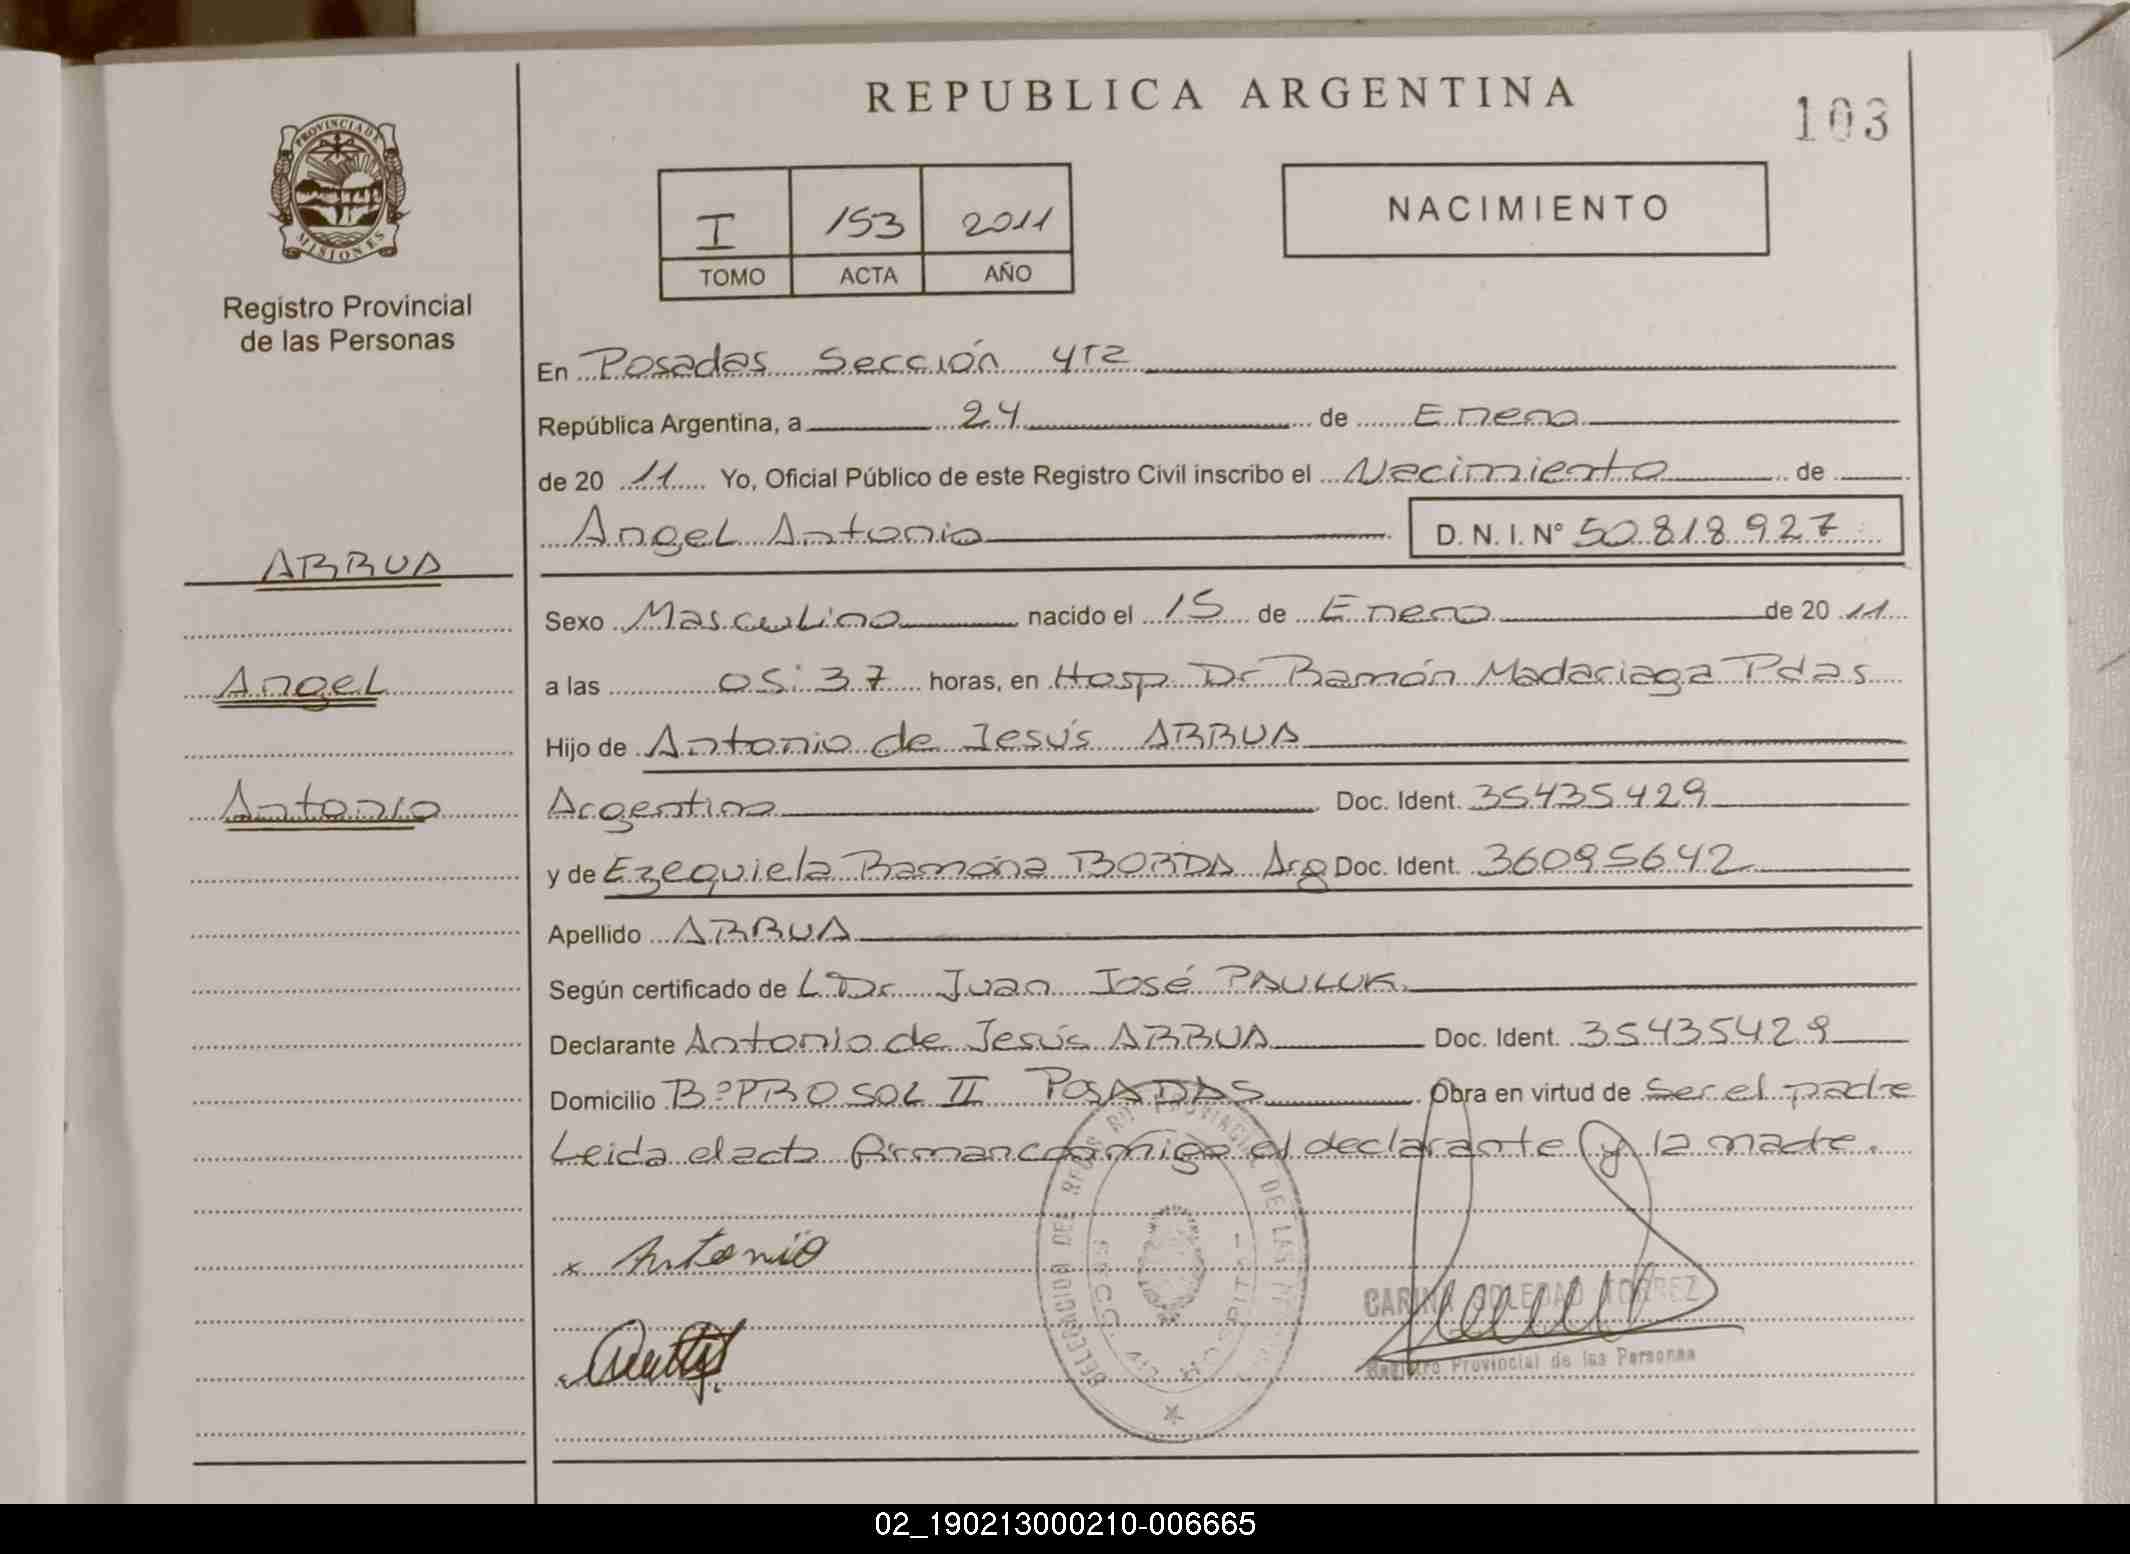 REPUBLICA ARGENTINA
103
PROVINCIA DE
MISIONES
Registro Provincial
de las Personas
I 153 2011
TOMO ACTA AÑO
NACIMIENTO
En Posadas Sección 4ta
República Argentina, a 24 de Enero
de 20 11 Yo, Oficial Público de este Registro Civil inscribo el Nacimiento de
Angel Antonio D. N. I. Nº 50.818.927
ARRUA
Angel
Antonio
Sexo Masculino nacido el 15 de Enero de 20 11
a las 05:37 horas, en Hosp Dr Ramón Madariaga Pdas
Hijo de Antonio de Jesús ARRUA
Argentino Doc. Ident. 35435429
y de Ezequiela Ramona BORDA Arg Doc. Ident. 36095642
Apellido ARRUA
Según certificado de L Dr Juan José PAULUK
Declarante Antonio de Jesús ARRUA Doc. Ident. 35435429
Domicilio BºPROSOL II POSADAS Obra en virtud de Ser el padre
Leida el acta firman conmigo el declarante y la madre.
x Antonio
CARINA SOLEDAD TORREZ
Registro Provincial de las Personas
02_190213000210-006665